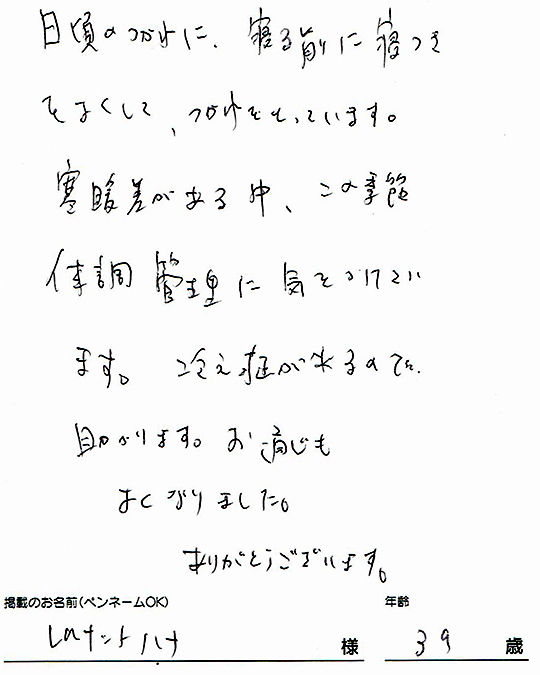 日頃のつかれに、寝る前に寝つき
をよくして、つかれをとっています。
寒暖差がある中、この季節
体調管理に気をつけてい
ます。冷え症があるので、
助かります。お通じも
よくなりました。
ありがとうございます。
掲載のお名前(ペンネームOK) 年齢
ハナ 様 39 歳